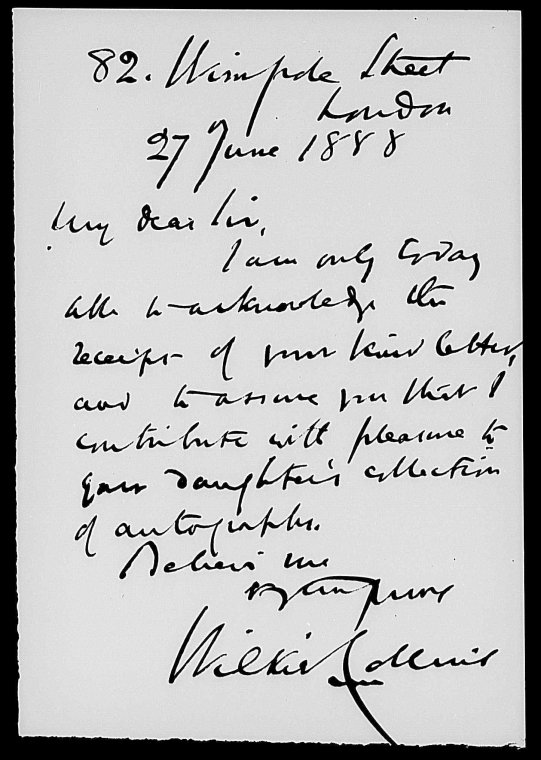 82. Wimpole Street
London
27 June 1888
My dear Sir,
I am only today
able to acknowledge the
receipt of your kind letter,
and to assure you that I
contribute with pleasure to
your daughter's collection
of autographs.
Believe me
truly yours
Wilkie Collins